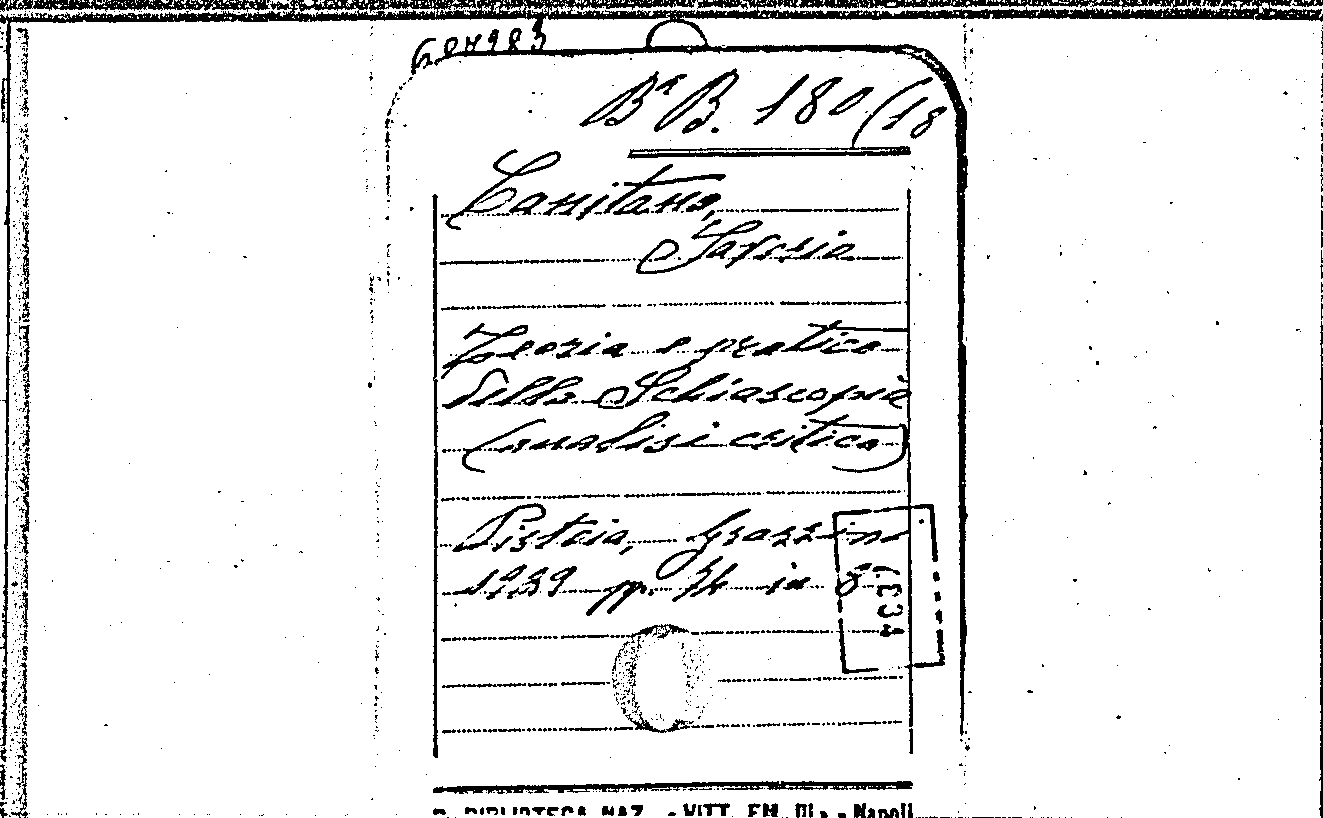 604983
Bª B. 180 (18
Canitano,
Saverio
Teoria e pratica
della Schiascopia
(analisi critica)
Pistoia, Grazzini
1939 pp. 54 in 8°
R. BIBLIOTECA NAZ. - VITT. EM. III » - Napoli